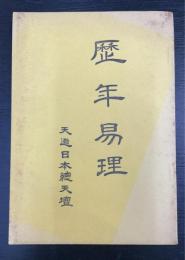 歴年易理
天道日本總天壇